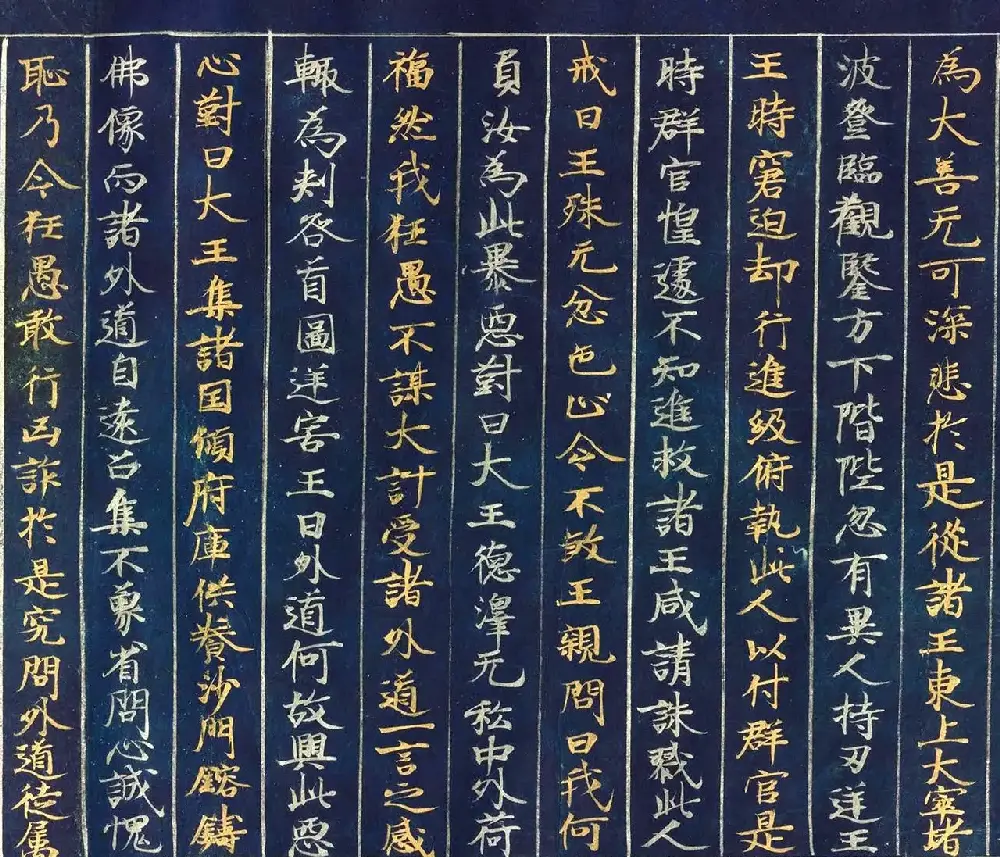 為大善无可深悲於是從諸王東上大窣堵
波登臨觀鑒方下階陛忽有異人持刃逆王
王時窘迫却行進級俯執此人以付群官是
時群官惶遽不知進救諸王咸請誅戮此人
戒日王殊无忿色止令不煞王親問曰我何
負汝為此暴惡對曰大王德澤无私中外荷
福然我狂愚不謀大計受諸外道一言之惑
輙為刺客首圖逆害王曰外道何故興此惡
心對曰大王集諸国傾府庫供養沙門鎔鑄
佛像而諸外道自遠召集不蒙省問心誠愧
恥乃令狂愚敢行凶詐於是究問外道徒属